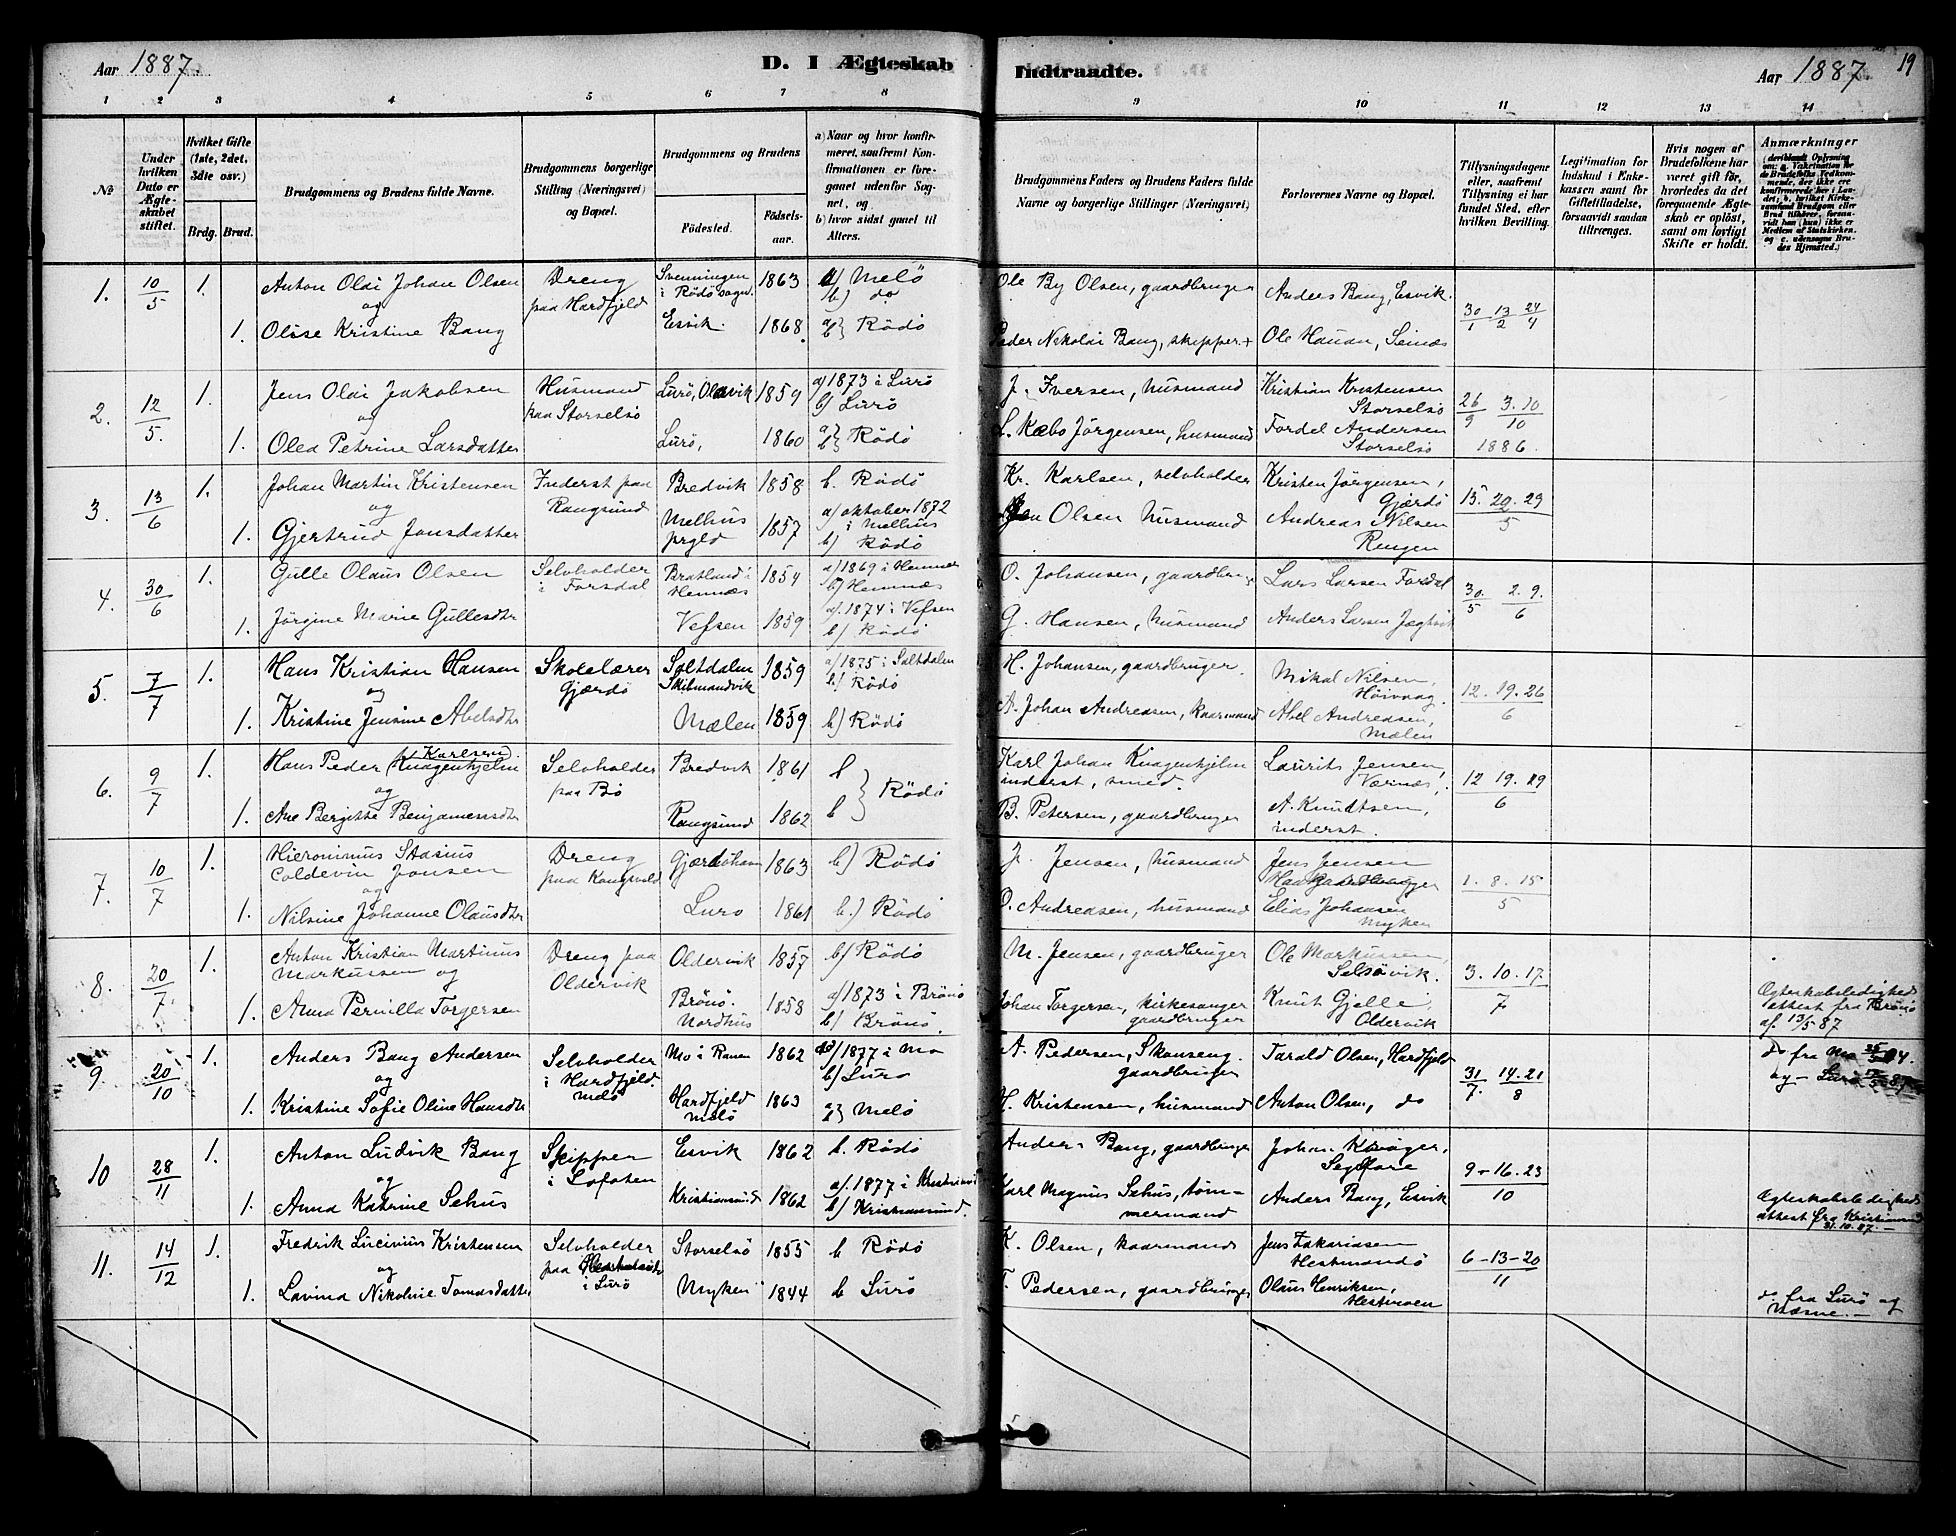 Aar 1887.
D. I Ægteskab Indtraadte.
Aar 1887. 19
1 2 3 4 5 6 7 8 9 10 11 12 13 14
№
Under hvilken Dato er Ægteskabet stiftet.
Hvilket Gifte (1ste, 2det, 3die osv.)
Brdg. Brud.
Brudgommens og Brudens fulde Navne.
Brudgommens borgerlige Stilling (Næringsvei) og Bopæl.
Brudgommens og Brudens
Födested.
Födselsaar.
a) Naar og hvor konfirmeret, saafremt Konfirmationen er foregaaet udenfor Sognet, og
b) hvor sidst gaaet til Alters.
Brudgommens Faders og Brudens Faders fulde Navne og borgerlige Stillinger (Næringsvei)
Forlovernes Navne og Bopæl.
Tillysningsdagene eller, saafremt Tillysning ei har fundet Sted, efter hvilken Bevilling.
Legitimation for Indskud i Enkekassen samt for Giftetilladelse, forsaavidt saadan tiltrænges.
Hvis nogen af Brudefolkene har været gift för, hvorledes da det foregaaende Ægteskab er oplöst, samt om lovligt Skifte er holdt.
Anmærkninger
1. 10/5 1. Anton Olai Johan Olsen Dreng Svenningen 1863 a) Melö Ole By Olsen, gaardbruger Anders Bang, Esvik.
og paa Hardfjeld i Rödö sogn. b) do 30/1 13/2 24/4
1. Olise Kristine Bang Esvik. 1868. a) b) Rödö Peder Nikolai Bang, skipper + Ole Hauan, Seinæs
2. 12/5. 1. Jens Olai Jakobsen Husmand Lurö, Olavik 1859 a) 1873 i Lurö J. Iversen, husmand Kristian Kristensen
og paa Storselsö b) Lurö Storselsö 26/9 3.10/10
1. Olea Petrine Larsdatter Lurö, 1860 a) b) Rödö L. Kæbo Jörgensen, husmand Fordel Andersen
Storselsö 1886.
3. 13/6 1. Johan Martin Kristensen Inderst paa Bredvik 1858 b. Rödö Kr. Karlsen, selvholder Kristen Jörgensen,
og Rangsund a) oktober 1872 Gjærdö 15. 20. 29/5
1. Gjertrud Jonsdatter Melhus prgld 1857 i Melhus Olsen husmand Andreas Nilsen
b) Rödö Rengen
4. 30/6 1. Gulle Olaus Olsen Selvholder Bratland i 1854 a) 1869 i Hemnes O. Johansen, gaardbrug. Lars Larsen Fordal
i Forsdal Hemnæs b) Hemnæs 30/5 2. 9./6
1. Jörgine Marie Gullesdtr Vefsen 1859 a). 1874 i Vefsen G. Hansen, husmand Anders Larsen Jegtvik
b) Rödö
5. 7/7 1. Hans Kristian Hansen Skolelærer Saltdalen 1859 a) 1875 i Saltdalen H. Johansen, gaardbruger. Mikal Nilsen,
og Gjærdö Skibmandvik b) Rödö Höivaag. 12. 19. 26/6
1. Kristine Jensine Abelsdtr Mælen 1859 b) Rödö A. Johan Andreasen, kaarmand Abel Andreasen,
Mælen
6. 9/7 1. Hans Peder Karlsen Knagenhjelm Selvholder Bredvik 1861 b Karl Johan Knagenhjelm Laurits Jensen,
og paa Bö Rödö inderst, smed. Værnæs, 12 19. 29/6
1. Ane Bergitte Benjaminsdtr Rangsund 1862 b B. Petersen, gaardbruger A. Knudtsen,
inderst.
7. 10/7 1. Hieronimus Stasius Dreng Gjærdöhavn 1863 b) Rödö J. Jensen, husmand Jens Jensen
Coldevin Jonsen paa Rangsund 1. 8. 15/5
og
1. Nilsine Johanne Olausdtr Lurö 1861 b.) Rödö O. Andreasen, husmand Elias Johansen
Myken
8. 20/7. 1. Anton Kristian Martinus Dreng paa Oldervik 1857 b) Rödö M. Jensen, gaardbruger Ole Markussen,
Markussen og Oldervik Selsövik. 3. 10. 17/7
1. Anna Pernilla Torgersen Brönö. Nordhus 1858 a) 1873 i Brönö Johan Torgersen, kirkesanger Knut Gjelle, Ægteskabsledigheds
b) Brönö. gaardbruger Oldervik attest fra Brönö
af 13/5 87
9 20/10 1. Anders Bang Andersen Selvholder Mo i Ranen 1862 a) 1877 i Mo A. Pedersen, Skonseng. Tarald Olsen, Hardfjeld do fra Mo
og i Hardfjeld. b) Lurö gaardbruger 31/7. 14. 21/8 og – Lurö
1. Kristine Sofie Oline Hansdtr Melö Hardfjeld Melö 1863 a) b) Melö H. Kristensen, husmand Anton Olsen, do
10 28/11 1. Anton Ludvik Bang Skipper Esvik 1862 b. Rödö Anders Bang, gaardbruger Johan
og i Lofoten a). 1877 i Kristiansund Segelfore 9 – 16. 23/10
1. Anna Katrine Sehus Kristiansund 1862 b) Kristiansund. Karl Magnus Sehus, tömmermand Anders Bang, Esvik Ægteskabsledigheds
attest fra Kristiansund
31.10.87.
11. 14/12 1. Fredrik Lucinius Kristensen Selvholder Storselsö 1855 b Rödö K. Olsen, kaarmand Jens Zakariasen
og paa i Lurö Hestmandö 6 – 13 – 20/11
1. Lavina Nikoline Tomasdatter Myken 1844 b Lurö T. Pedersen, gaardbruger Olaus Henriksen,
Hestmoen
do fra Lurö og
Næsne. –